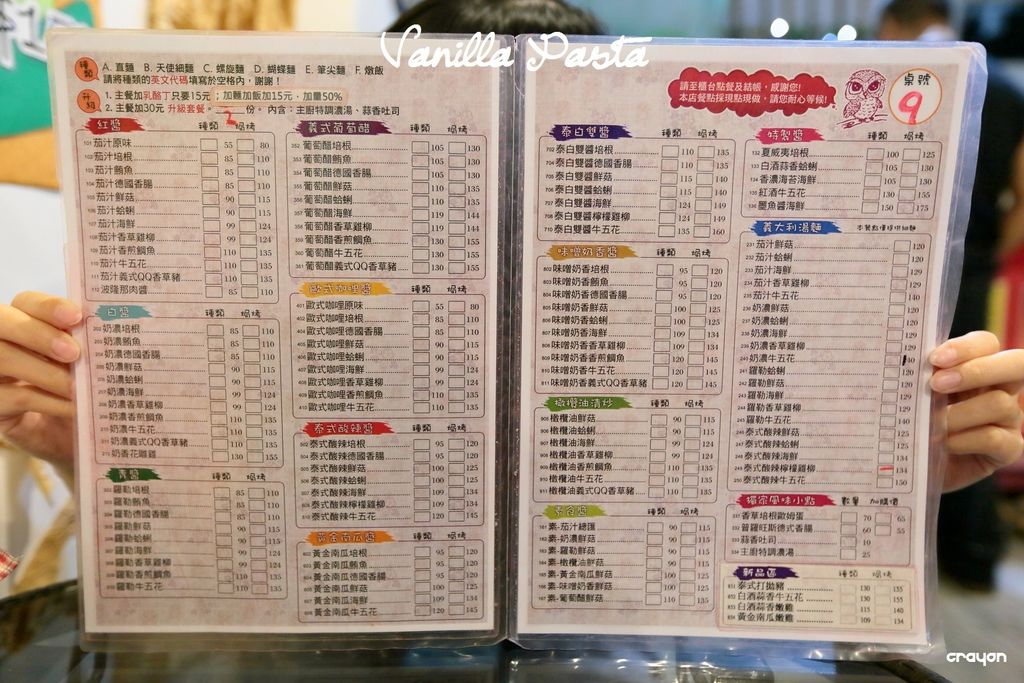 Vanilla Pasta
種類 A. 直麵 B. 天使細麵 C. 螺旋麵 D. 蝴蝶麵 E. 筆尖麵 F. 燉飯
請將種類的英文代碼填寫於空格內，謝謝！
升級 1. 主餐加乳酪丁只要15元；加麵加飯加15元，加量50%
2. 主餐加30元 升級套餐。 份。內含：主廚特調濃湯、蒜香吐司
紅醬 種類 焗烤
101 茄汁原味 55 80
102 茄汁培根 85 110
103 茄汁鮪魚 85 110
104 茄汁德國香腸 85 110
105 茄汁鮮菇 90 115
106 茄汁蛤蜊 90 115
茄汁海鮮 99 124
茄汁香草雞柳 99 124
茄汁香煎鯛魚 110 135
110 茄汁牛五花 110 135
111 茄汁義式QQ香草豬 110 135
112 波隆那肉醬 110 135
白醬 種類 焗烤
202 奶濃培根 85 110
203 奶濃鮪魚 85 110
204 奶濃德國香腸 85 110
205 奶濃鮮菇 90 115
206 奶濃蛤蜊 90 115
207 奶濃海鮮 99 124
208 奶濃香草雞柳 99 124
209 奶濃香煎鯛魚 110 135
210 奶濃牛五花 110 135
211 奶濃義式QQ香草豬 110 135
奶香花雕雞 130 155
青醬 種類 焗烤
302 羅勒培根 85 110
303 羅勒鮪魚 85 110
304 羅勒德國香腸 85 110
305 羅勒鮮菇 90 115
306 羅勒蛤蜊 90 115
307 羅勒海鮮 99 124
308 羅勒香草雞柳 99 124
309 羅勒香煎鯛魚 110 135
310 羅勒牛五花 110 135
義式葡萄醋 種類 焗烤
352 葡萄醋培根 105 130
353 葡萄醋鮪魚 105 130
354 葡萄醋德國香腸 105 130
355 葡萄醋鮮菇 110 135
356 葡萄醋蛤蜊 110 135
357 葡萄醋海鮮 119 144
358 葡萄醋香草雞柳 119 144
359 葡萄醋香煎鯛魚 130 155
360 葡萄醋牛五花 130 155
361 葡萄醋義式QQ香草豬 130 155
歐式咖哩醬 種類 焗烤
401 歐式咖哩原味 55 80
402 歐式咖哩培根 85 110
404 歐式咖哩德國香腸 85 110
405 歐式咖哩鮮菇 90 115
406 歐式咖哩蛤蜊 90 115
407 歐式咖哩海鮮 99 124
408 歐式咖哩香草雞柳 99 124
410 歐式咖哩牛五花 110 135
泰式酸辣醬 種類 焗烤
502 泰式酸辣培根 95 120
504 泰式酸辣德國香腸 95 120
505 泰式酸辣鮮菇 100 125
506 泰式酸辣蛤蜊 100 125
507 泰式酸辣海鮮 109 134
508 泰式酸辣檸檬雞柳 109 134
510 泰式酸辣牛五花 120 145
黃金南瓜醬 種類 焗烤
602 黃金南瓜培根 95 120
603 黃金南瓜鮪魚 95 120
604 黃金南瓜德國香腸 95 120
605 黃金南瓜鮮菇 100 125
607 黃金南瓜海鮮 109 134
黃金南瓜牛五花 120 145
請至櫃台點餐及結帳，感謝您！
本店餐點採現點現做，請您耐心等候！
桌號 9
泰白雙醬 種類 焗烤
702 泰白雙醬培根 110 135
704 泰白雙醬德國香腸 110 135
705 泰白雙醬鮮菇 115 140
706 泰白雙醬蛤蜊 115 140
707 泰白雙醬海鮮 124 149
708 泰白雙醬檸檬雞柳 124 149
710 泰白雙醬牛五花 135 160
味噌奶香醬 種類 焗烤
802 味噌奶香培根 95 120
803 味噌奶香鮪魚 95 120
804 味噌奶香德國香腸 95 120
805 味噌奶香鮮菇 100 125
806 味噌奶香蛤蜊 100 125
807 味噌奶香海鮮 109 134
808 味噌奶香香草雞柳 109 134
809 味噌奶香香煎鯛魚 120 145
810 味噌奶香牛五花 120 145
811 味噌奶香義式QQ香草豬 120 145
橄欖油清炒 種類 焗烤
905 橄欖油鮮菇 90 115
906 橄欖油蛤蜊 90 115
907 橄欖油海鮮 99 124
908 橄欖油香草雞柳 99 124
909 橄欖油香煎鯛魚 110 135
910 橄欖油牛五花 110 135
911 橄欖油義式QQ香草豬 110 135
素食醬 種類 焗烤
161 素-茄汁總匯 90 115
素-奶濃鮮菇 90 115
素-羅勒鮮菇 90 115
素-咖哩鮮菇 90 115
165 素-黃金南瓜鮮菇 100 125
166 素-味噌奶香鮮菇 100 125
167 素-葡萄醋鮮菇 110 135
特製醬 種類 焗烤
132 夏威夷培根 100 125
133 白酒蒜香蛤蜊 105 130
134 香濃海苔海鮮 110 135
135 紅酒牛五花 130 155
136 墨魚醬海鮮 150 175
義大利湯麵 本餐點僅提供細麵
231 茄汁鮮菇 120
232 茄汁蛤蜊 120
233 茄汁海鮮 129
234 茄汁香草雞柳 129
235 茄汁牛五花 140
奶濃鮮菇 120
237 奶濃蛤蜊 120
238 奶濃海鮮 129
239 奶濃香草雞柳 129
240 奶濃牛五花 140
241 羅勒蛤蜊 120
242 羅勒鮮菇 120
243 羅勒海鮮 129
244 羅勒香草雞柳 129
245 羅勒牛五花 140
246 泰式酸辣鮮菇 125
247 泰式酸辣蛤蜊 125
248 泰式酸辣海鮮 134
249 泰式酸辣檸檬雞柳 134
250 泰式酸辣牛五花 150
獨家風味小點 數量 加購價
331 香草培根歐姆蛋 70 65
332 普羅旺斯德式香腸 60 55
333 蒜香吐司 10
334 主廚特調濃湯 25
新品區 種類 焗烤
831 泰式打拋豬 130 155
832 白酒蒜香牛五花 130 155
833 白酒蒜香嫩雞 115 140
834 黃金南瓜嫩雞 109 134
crayon